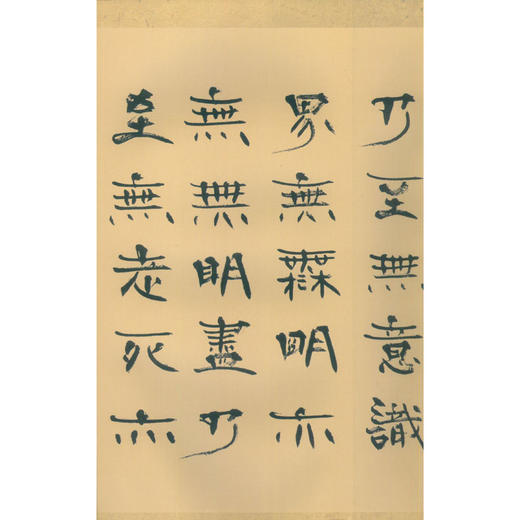 乃至無意識
界無無明亦
無無明盡乃
至無老死亦